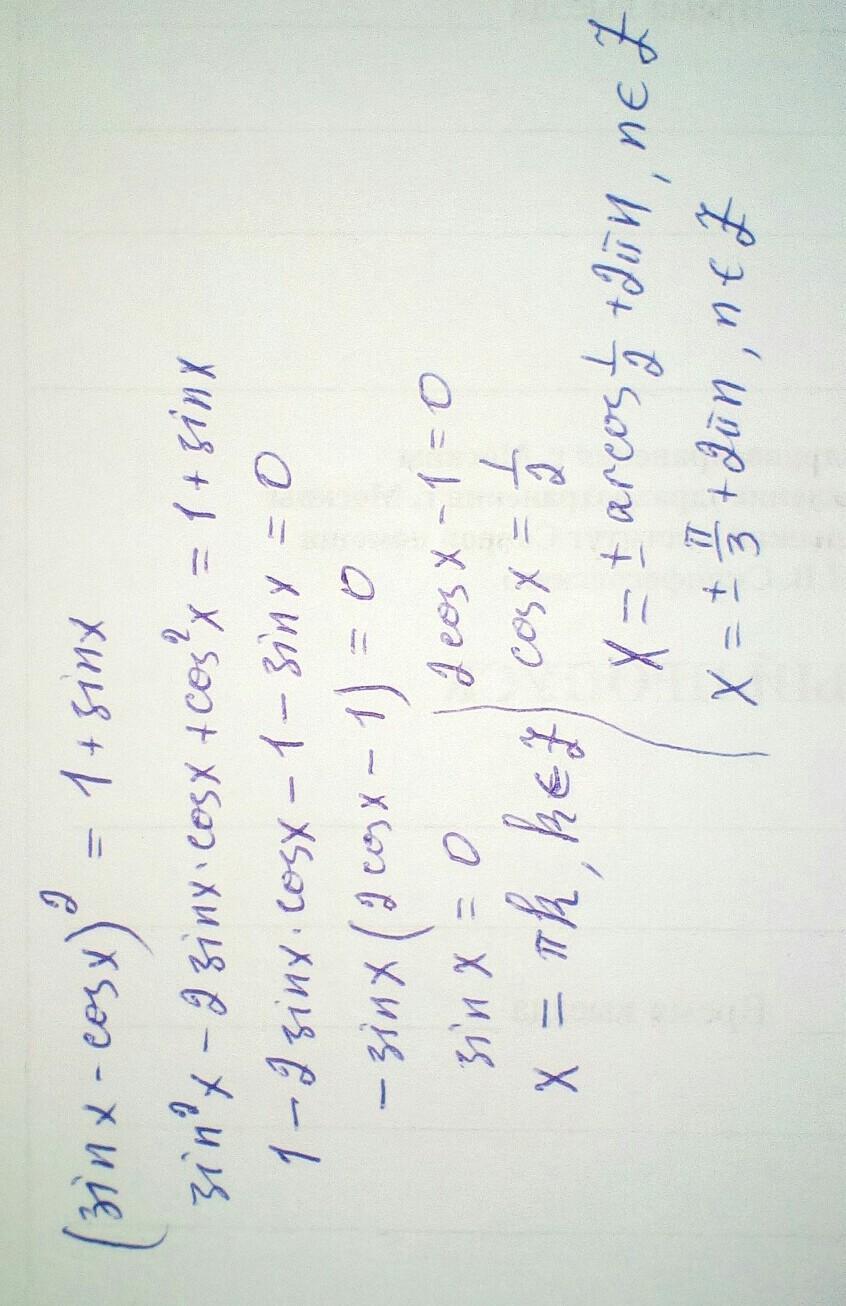 (sin x - cos x)² = 1 + sin x
sin² x - 2 sin x · cos x + cos² x = 1 + sin x
1 - 2 sin x · cos x - 1 - sin x = 0
- sin x (2 cos x - 1) = 0
sin x = 0
x = πk, k ∈ Z
2 cos x - 1 = 0
cos x = 1/2
x = ± arcos 1/2 + 2πn, n ∈ Z
x = ± π/3 + 2πn, n ∈ Z